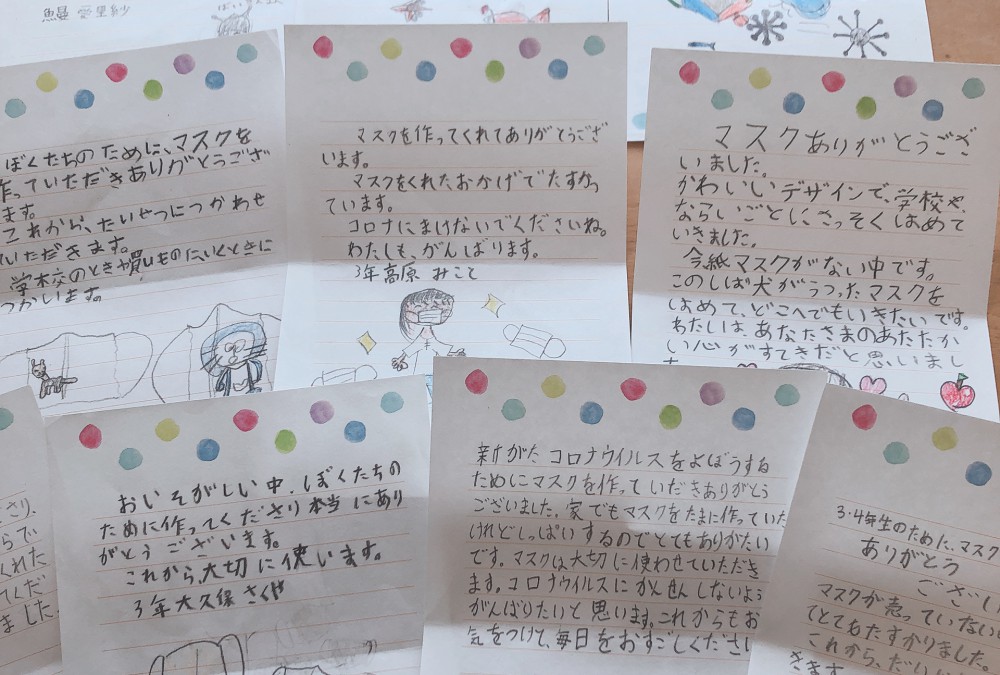 鰻 愛里紗
ぼくたちのために、マスクを
作っていただきありがとうござ
ます。
これから、たいせつにつかわせ
いただきます。
学校のときや買いものにいくときに
つかいます。
マスクを作ってくれてありがとうござ
います。
マスクをくれたおかげでたすかっ
ています。
コロナにまけないでくださいね。
わたしも、がんばります。
3年高原 みこと
マスクありがとうござ
いました。
かわいいデザインで、学校や
ならいごとにさっそくはめて
いきました。
今紙マスクがない中です。
このしば犬がうつったマスクを
はめて、どこへでもいきたいです。
わたしは、あなたさまのあたたか
い心がすてきだと思いまし
さり、
らで
くれた
てくだ
ました
おいそがしい中、ぼくたちの
ために作ってくださり本当にあり
がとうございます。
これから、大切に使います。
3年大久保 さくや
新がたコロナウイルスをよぼうする
ためにマスクを作っていだきありがとう
ございました。家でもマスクをたまに作っていた
けれどしっぱいするのでとてもありがたい
です。マスクは大切に使わせていただき
ます。コロナウイルスにかんせんしないよう
がんばりたいと思います。これからもお
気をつけて、毎日をおすごしくださ
3・4年生のために、マスク
ありがとう
ござい
マスクが売っていない
とてもたすかりました。
これから、だい
きます